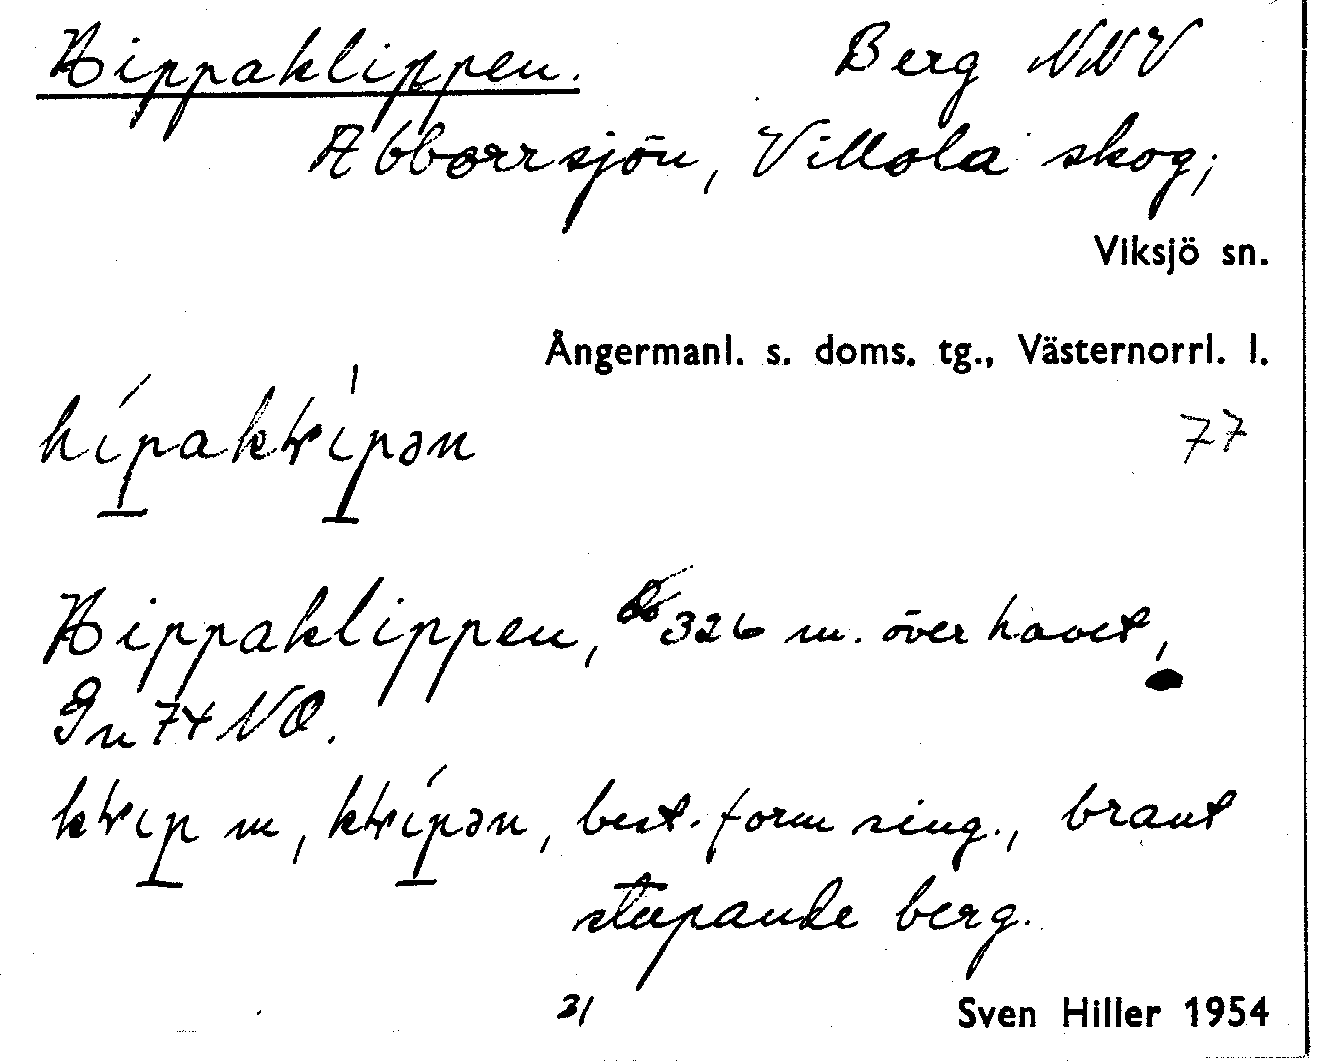 Hippaklippen. Berg NNV
Abborrsjön, Villola skog;
Viksjö sn.
Ångermanl. s. doms. tg., Västernorrl. l.
77
Hippaklippen, 326 m. över havet,
Gn 74 NO.
m, best. form sing., brant
stupande berg.
21 Sven Hiller 1954